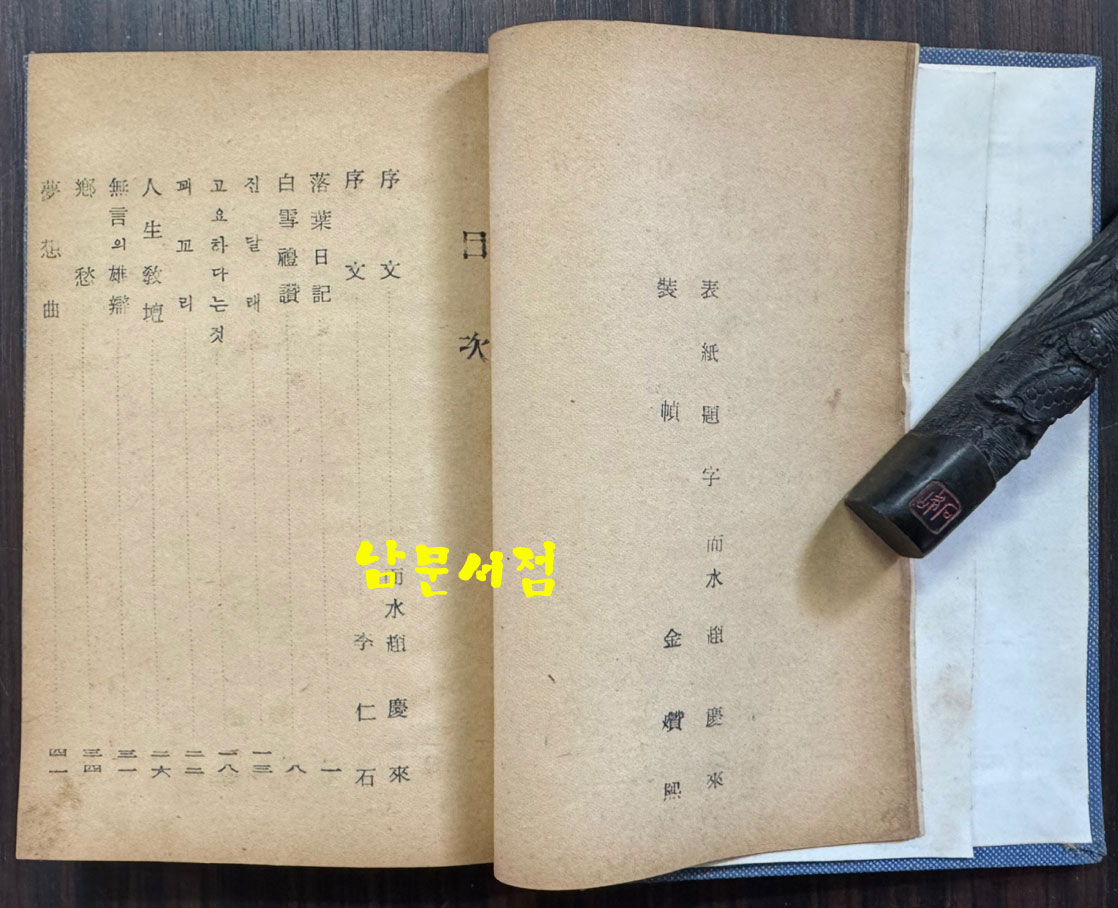 表紙題字 而水 趙慶來
裝幀 金 熙
目次
序文 而水 趙慶來
序文 李仁石
落葉日記 一
白雪禮讚 八
진달래 一三
고요하다는것 一八
꾀꼬리 二二
人生敎壇 二六
無言의雄辯 三一
鄕愁 三四
夢想曲 四一
남문서점